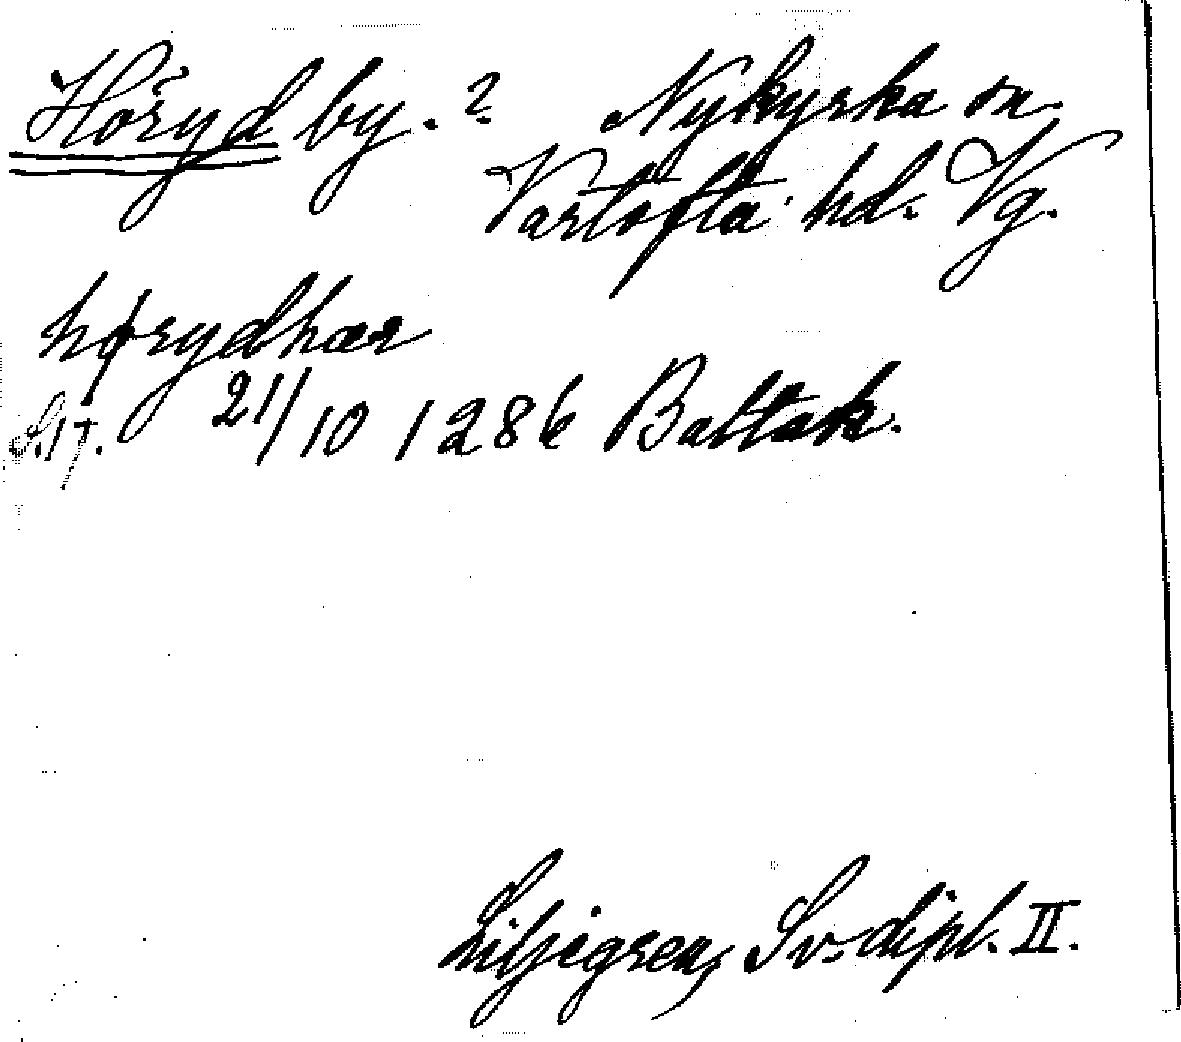 Höryd by. ? Nykyrka sn.
Vartofta hd. Vg.
hørydhær
S. 17. 21/10 1286 Baltak.
Liljegren, Sv. dipl. II.